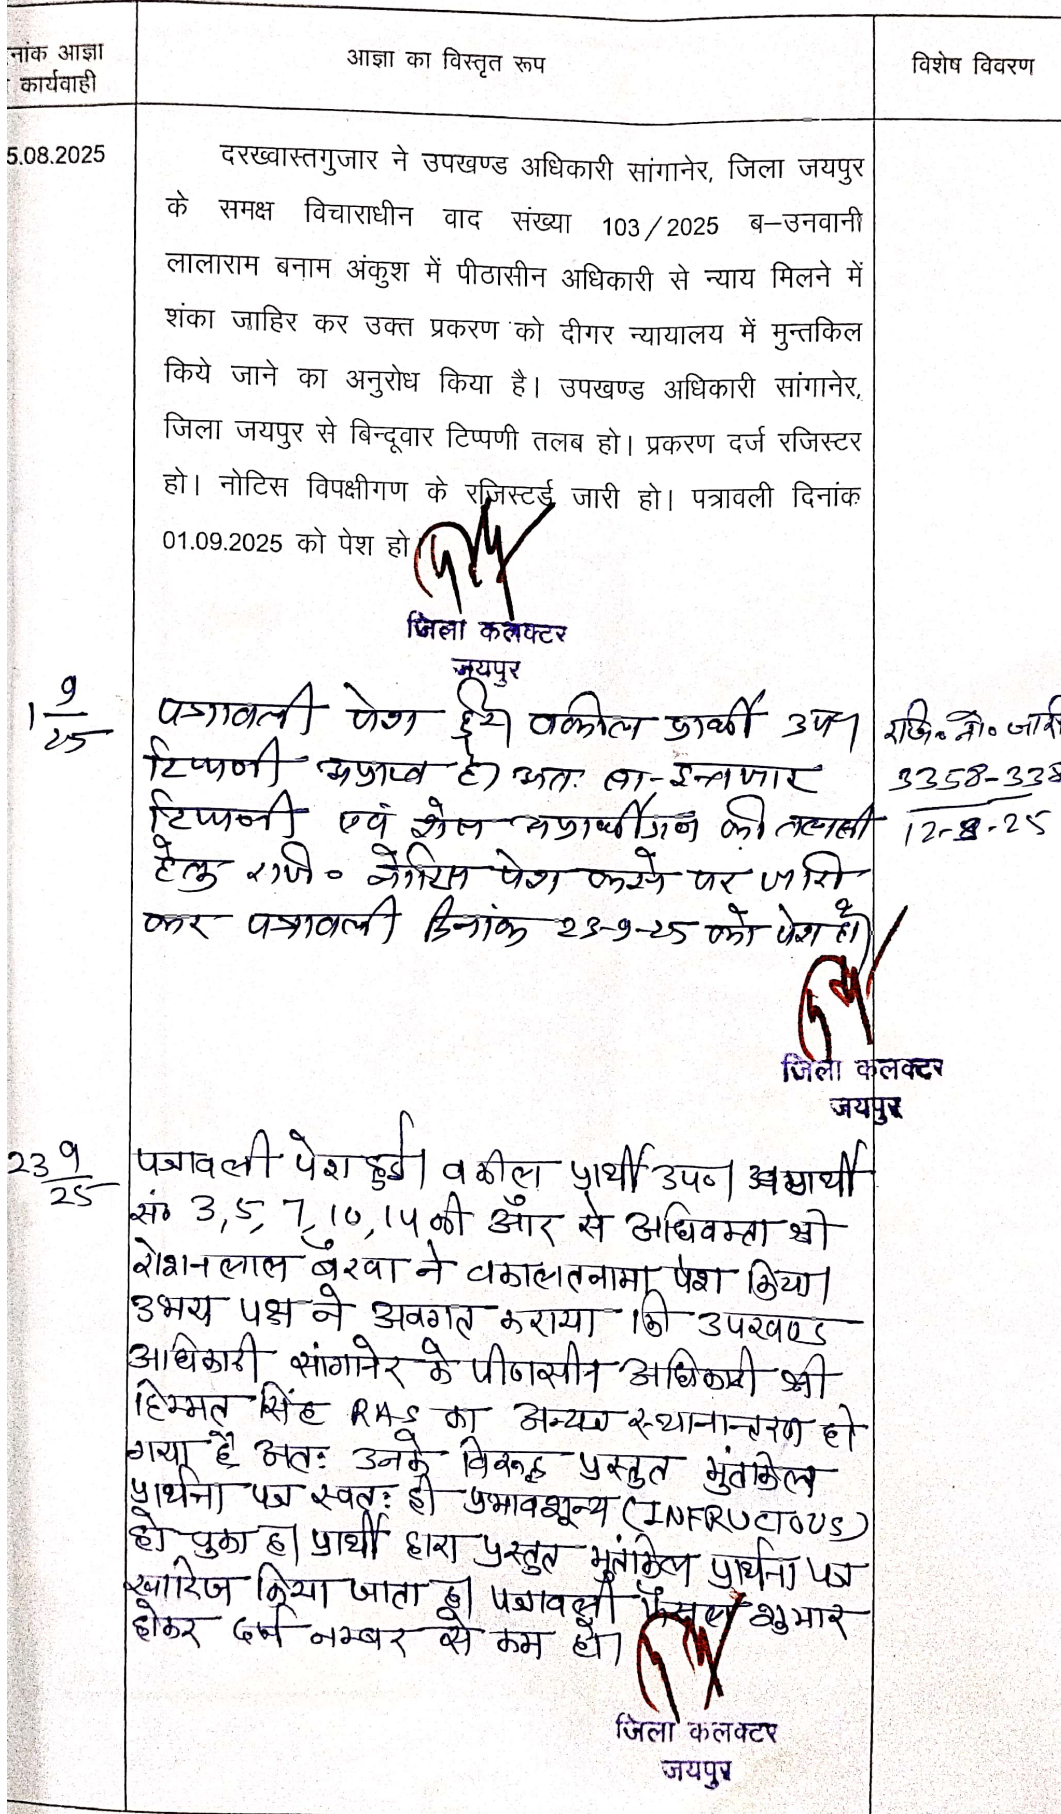 नांक आज्ञा
कार्यवाही
आज्ञा का विस्तृत रूप
विशेष विवरण
5.08.2025
दरख्वास्तगुजार ने उपखण्ड अधिकारी सांगानेर, जिला जयपुर
के समक्ष विचाराधीन वाद संख्या 103/2025 ब–उनवानी
लालाराम बनाम अंकुश में पीठासीन अधिकारी से न्याय मिलने में
शंका जाहिर कर उक्त प्रकरण को दीगर न्यायालय में मुन्तकिल
किये जाने का अनुरोध किया है। उपखण्ड अधिकारी सांगानेर,
जिला जयपुर से बिन्दूवार टिप्पणी तलब हो। प्रकरण दर्ज रजिस्टर
हो। नोटिस विपक्षीगण के रजिस्टर्ड जारी हो। पत्रावली दिनांक
01.09.2025 को पेश हो
जिला कलक्टर
जयपुर
1 9/25
पत्रावली पेश हुई। वकील प्रार्थी उप०।
टिप्पणी अप्राप्त है। अतः बा-इन्तजार
टिप्पणी एवं शेष अप्रार्थीगण की तलबी
हेतु रजि० नोटिस पेश करने पर जारी
कर पत्रावली दिनांक 23-9-25 को पेश हो।
रजि० नो० जारी
3358-338
12-8-25
जिला कलक्टर
जयपुर
23 9/25
पत्रावली पेश हुई। वकील प्रार्थी उप०। अप्रार्थी
सं० 3, 5, 7, 10, 14 की ओर से अधिवक्ता श्री
रोशनलाल बैरवा ने वकालतनामा पेश किया।
उभय पक्ष ने अवगत कराया कि उपखण्ड
अधिकारी सांगानेर के पीठासीन अधिकारी श्री
हिम्मत सिंह RAS का अन्यत्र स्थानान्तरण हो
गया है अतः उनके विरूद्ध प्रस्तुत मुंतकिल
प्रार्थना पत्र स्वतः ही प्रभावशून्य (INFRUCTOUS)
हो चुका है। प्रार्थी द्वारा प्रस्तुत मुंतकिल प्रार्थना पत्र
खारिज किया जाता है। पत्रावली फैसल शुमार
होकर दर्ज नम्बर से कम हो।
जिला कलक्टर
जयपुर